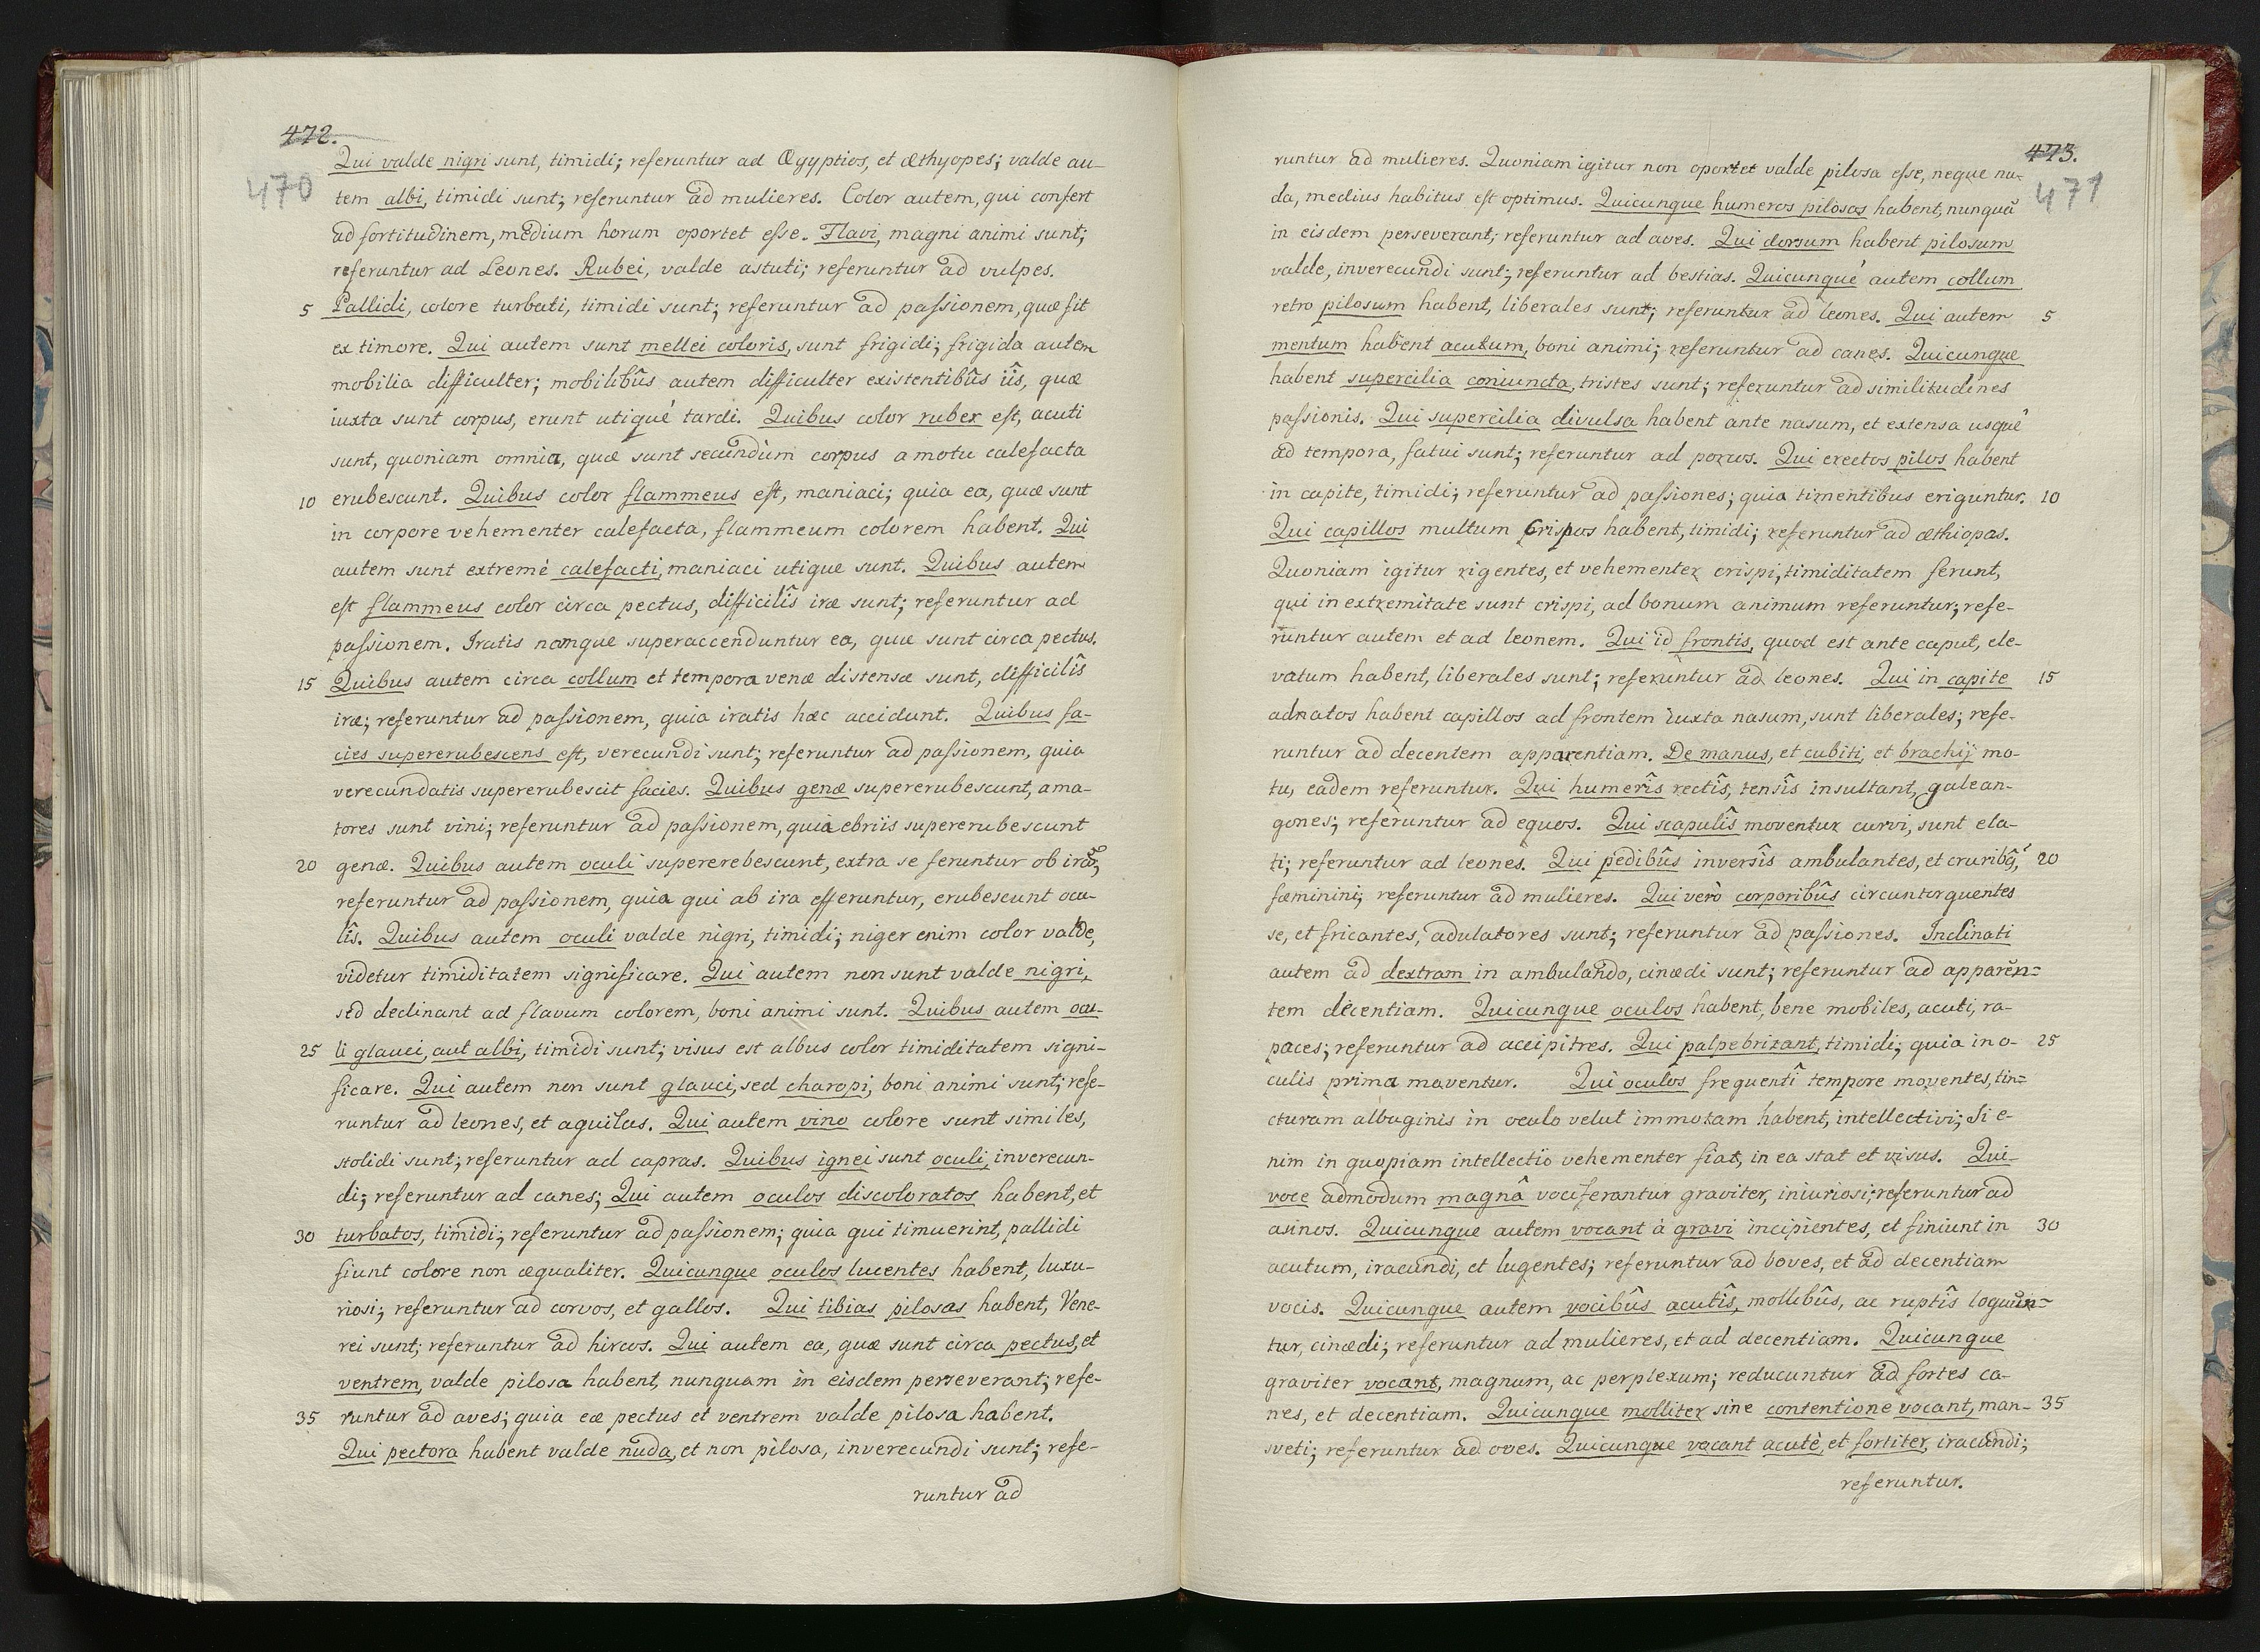 472.
470
Qui valde nigri sunt, timidi; referuntur ad Ægyptios, et æthyopes; valde au-
tem albi, timidi sunt; referuntur ad mulieres. Color autem, qui confert
ad fortitudinem, medium horum oportet esse. Flavi, magni animi sunt;
referuntur ad Leones. Rubei, valde astuti; referuntur ad vulpes.
5 Pallidi, colore turbati, timidi sunt; referuntur ad passionem, quæ fit
ex timore. Qui autem sunt mellei coloris, sunt frigidi; frigida autem
mobilia difficulter; mobilibûs autem difficulter existentibûs iîs, quæ
iuxta sunt corpus, erunt utiqué tardi. Quibus color ruber est, acuti
sunt, quoniam omnia, quæ sunt secundùm corpus a motu calefacta
10 erubescunt. Quibus color flammeus est, maniaci; quia ea, quæ sunt
in corpore vehementer calefacta, flammeum colorem habent. Qui
autem sunt extremè calefacti, maniaci utique sunt. Quibus autem
est flammeus color circa pectus, difficilîs iræ sunt; referuntur ad
passionem. Iratis namque superaccenduntur ea, quæ sunt circa pectus.
15 Quibus autem circa collum et tempora venæ distensæ sunt, difficilîs
iræ; referuntur ad passionem, quia iratis hæc accidunt. Quibus fa-
cies supererubescens est, verecundi sunt; referuntur ad passionem, quia
verecundatis supererubescit facies. Quibus genæ supererubescunt, ama-
tores sunt vini; referuntur ad passionem, quia ebriis supererubescunt
20 genæ. Quibus autem oculi supererebescunt, extra se feruntur ob iras;
referuntur ad passionem, quia qui ab ira efferuntur, erubescunt ocu-
lîs. Quibus autem oculi valde nigri, timidi; niger enim color valde,
videtur timiditatem significare. Qui autem non sunt valde nigri,
sed declinant ad flavum colorem, boni animi sunt. Quibus autem ocu-
25 li glauci, aut albi, timidi sunt; visus est albus color timiditatem signi-
ficare. Qui autem non sunt glauci, sed charopi, boni animi sunt; refe-
runtur ad leones, et aquilas. Qui autem vino colore sunt similes,
stolidi sunt; referuntur ad capras. Quibus ignei sunt oculi, inverecun-
di; referuntur ad canes; Qui autem oculos discoloratos habent, et
30 turbatos, timidi; referuntur ad passionem; quia qui timuerint, pallidi
fiunt colore non æqualiter. Quicunque oculos lucentes habent, luxu-
riosi; referuntur ad corvos, et gallos. Qui tibias pilosas habent, Vene-
rei sunt; referuntur ad hircos. Qui autem ea, quæ sunt circa pectus, et
ventrem, valde pilosa habent, nunquam in eisdem perseverant; refe-
35 runtur ad aves; quia eæ pectus et ventrem valde pilosa habent.
Qui pectora habent valde nuda, et non pilosa, inverecundi sunt; refe-
runtur ad
473.
471
runtur ad mulieres. Quoniam igitur non oportet valde pilosa esse, neque nu-
da, medius habitus est optimus. Quicunque humeros pilosos habent, nunquã
in eisdem perseverant; referuntur ad aves. Qui dorsum habent pilosum
valde, inverecundi sunt; referuntur ad bestias. Quicunqué autem collum
retro pilosum habent, liberales sunt; referuntur ad leones. Qui autem 5
mentum habent acutum, boni animi; referuntur ad canes. Quicunque
habent supercilia coniuncta, tristes sunt; referuntur ad similitudines
passionis. Qui supercilia divulsa habent ante nasum, et extensa usquê
ad tempora, fatui sunt; referuntur ad porcos. Qui erectos pilos habent
in capite, timidi; referuntur ad passiones; quia timentibus eriguntur. 10
Qui capillos multum crispos habent, timidi; referuntur ad æthiopas.
Quoniam igitur rigentes, et vehementer crispi, timiditatem ferunt,
qui in extremitate sunt crispi, ad bonum animum referuntur; refe-
runtur autem et ad leonem. Qui id frontis, quod est ante caput, ele-
vatum habent, liberales sunt; referuntur ad leones. Qui in capite 15
adnatos habent capillos ad frontem iuxta nasum, sunt liberales; refe-
runtur ad decentem apparentiam. De manus, et cubiti, et brachij mo-
tu, eadem referuntur. Qui humerîs rectîs, tensîs insultant, galean-
gones; referuntur ad equos. Qui scapulîs moventur curvi, sunt ela-
ti; referuntur ad leones. Qui pedibûs inversîs ambulantes, et cruribq̃, 20
fæminini; referuntur ad mulieres. Qui verò corporibûs circuntorquentes
se, et fricantes, adulatores sunt; referuntur ad passiones. Inclinati
autem ad dextram in ambulando, cinædi sunt; referuntur ad apparen=
tem decentiam. Quicunque oculos habent, bene mobiles, acuti, ra-
paces; referuntur ad accipitres. Qui palpebrizant, timidi; quia in o- 25
culis prima moventur. Qui oculos frequentî tempore moventes, tin=
cturam albuginis in oculo velut immotam habent, intellectivi; Si e-
nim in quopiam intellectio vehementer fiat, in ea stat et visus. Qui
voce admodum magnâ vociferantur graviter, iniuriosi; referuntur ad
asinos. Quicunque autem vocant à gravi incipientes, et finiunt in 30
acutum, iracundi, et lugentes; referuntur ad boves, et ad decentiam
vocis. Quicunque autem vocibûs acutîs, mollibûs, ac ruptîs loquun=
tur, cinædi; referuntur ad mulieres, et ad decentiam. Quicunque
graviter vocant, magnum, ac perplexum; reducuntur ad fortes ca-
nes, et decentiam. Quicunque molliter sine contentione vocant, man- 35
sveti; referuntur ad oves. Quicunque vocant acutè, et fortiter, iracundi;
referuntur.